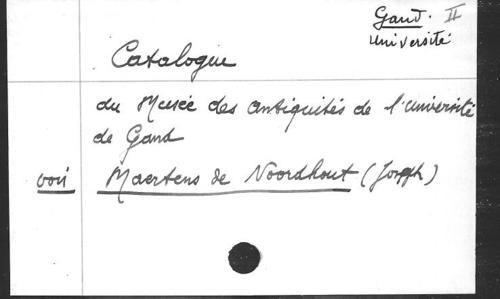 Gand. II
Université
Catalogue
du Musée des antiquités de l'université
de Gand
voir Maertens de Noordhout (Joseph)